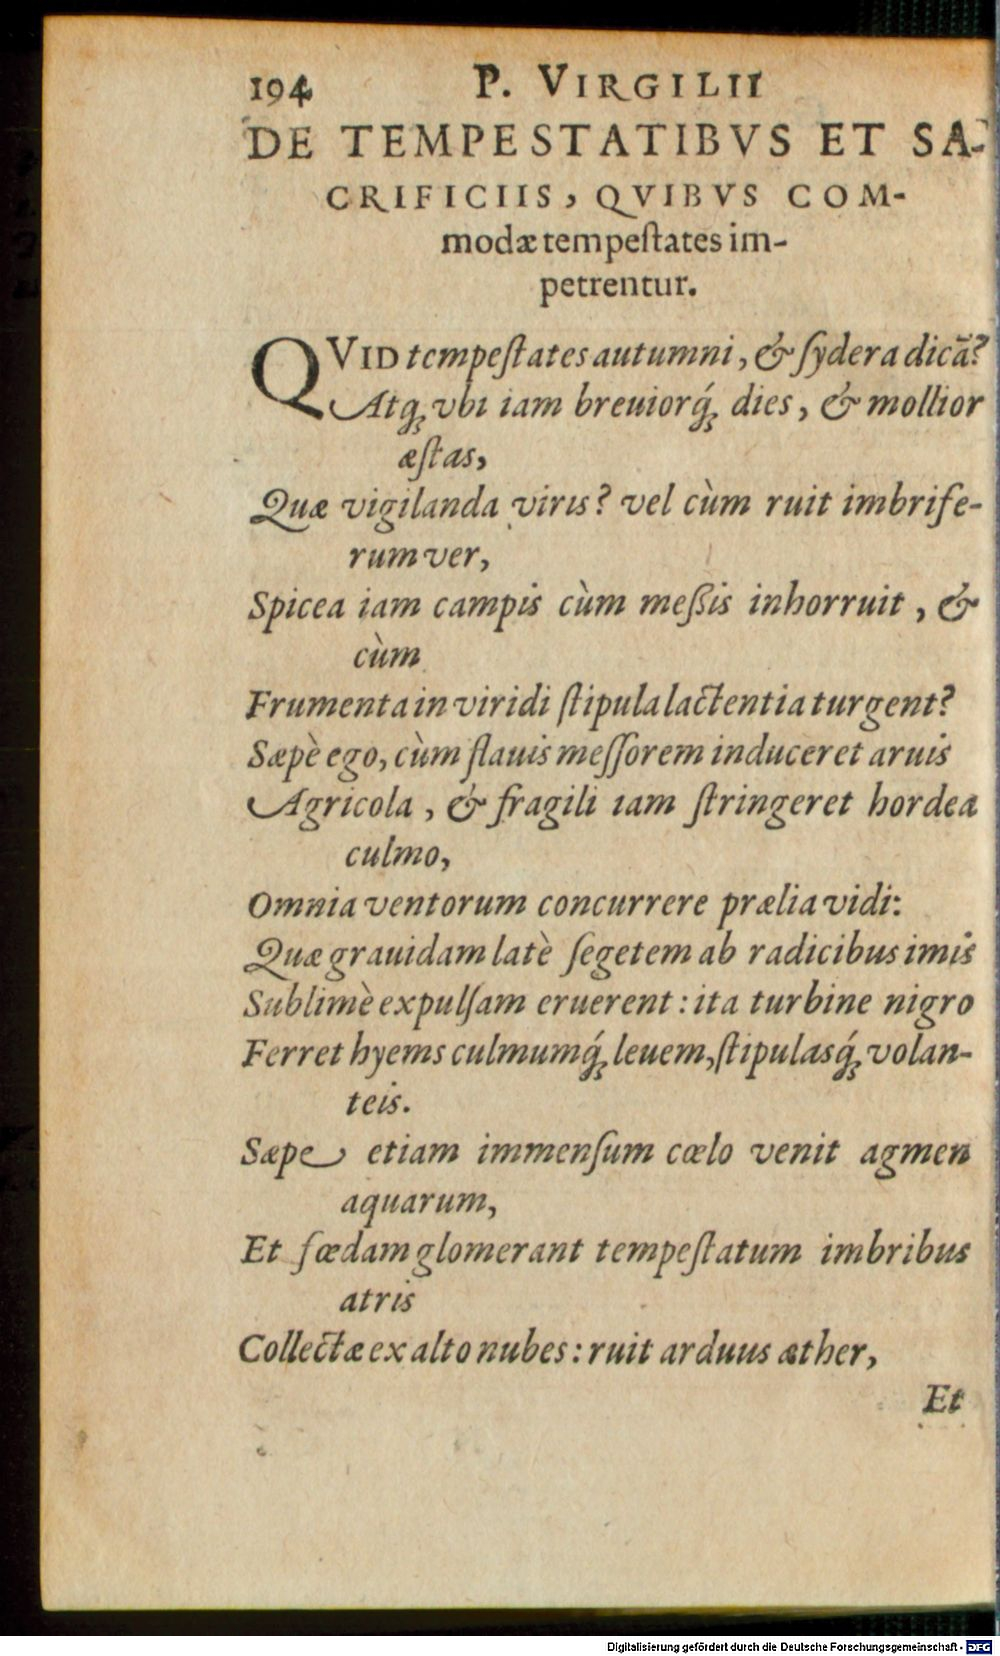 194 P. VIRGILII
DE TEMPESTATIBVS ET SA-
CRIFICIIS, QVIBVS COM-
modæ tempeſtates im-
petrentur.
QVID tempeſtates autumni, & ſydera dicā?
Atq́; vbi iam breuiorq́; dies, & mollior
æſtas,
Quæ vigilanda viris? vel cùm ruit imbrife-
rum ver,
Spicea iam campis cùm meſſis inhorruit, &
cùm
Frumenta in viridi ſtipula lactentia turgent?
Sæpè ego, cùm flauis meſſorem induceret aruis
Agricola, & fragili iam ſtringeret hordea
culmo,
Omnia ventorum concurrere prælia vidi:
Quæ grauidam latè ſegetem ab radicibus imis
Sublimè expulſam eruerent: ita turbine nigro
Ferret hyems culmumq́; leuem, ſtipulasq́; volan-
teis.
Sæpe etiam immenſum cœlo venit agmen
aquarum,
Et fœdam glomerant tempeſtatum imbribus
atris
Collectæ ex alto nubes: ruit arduus æther,
Et
Digitalisierung gefördert durch die Deutsche Forschungsgemeinschaft - DFG